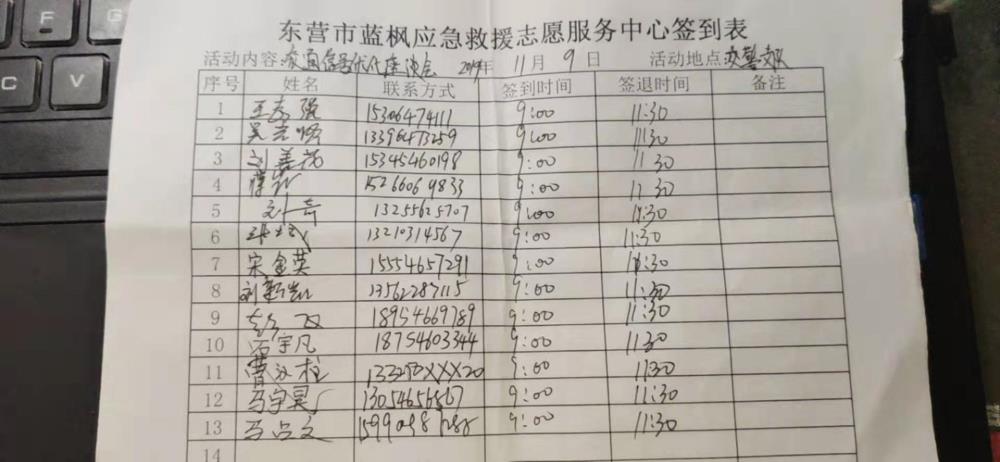 F G
C V
东营市蓝枫应急救援志愿服务中心签到表
活动内容:交通信号优化座谈会 2019年 11月 9日 活动地点:交警支队
序号 姓名 联系方式 签到时间 签退时间 备注
1 王 强 15306474111 9:00 11:30
2 吴 13396473259 9:00 11:30
3 刘善 15345460198 9:00 11:30
4 15266069833 9:00 11:30
5 刘奇 13255625707 9:00 11:30
6 13210314567 9:00 11:30
7 宋金英 15554657291 9:00 11:30
8 刘新凯 13562287115 9:00 11:30
9 赵 18954669789 9:00 11:30
10 宇凡 18754603344 9:00 11:30
11 曹 柱 XXX20 9:00 11:30
12 马宇昊 13054656567 9:00 11:30
13 马占文 9:00 11:30
14